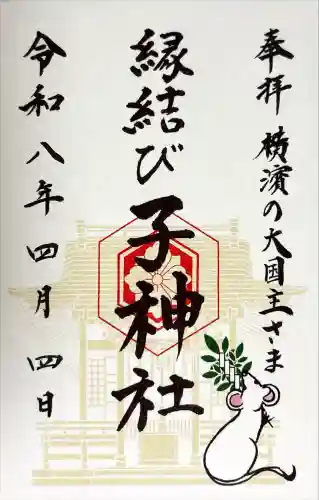 奉拝 横濱の大国主さま
縁結び 子神社
令和八年 四月 四日